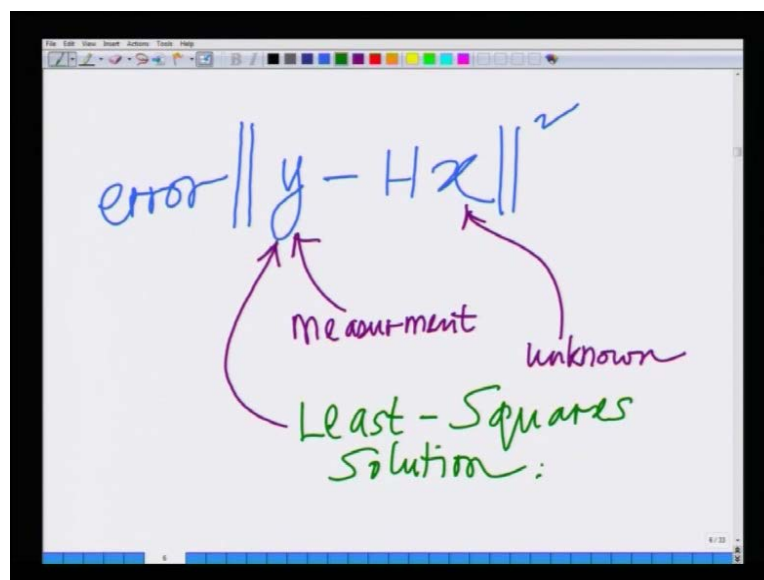 File Edit View Insert Actions Tools Help
error ||y - Hx||²
measurment
unknown
Least - Squares
Solution:
6
6/33